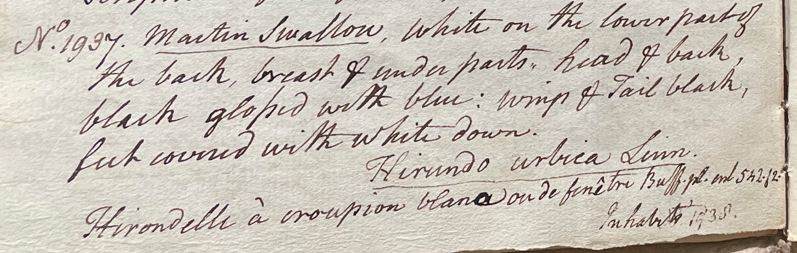 No. 1937. Martin Swallow, white on the lower part of
the back, breast & under parts. head & back,
black glossed with blue: wings & Tail black,
feet covered with white down.
Hirundo urbica Linn.
Hirondelle à croupion blanc ou de fenêtre Buff. pl. enl. 542. f. 2.
Inhabits